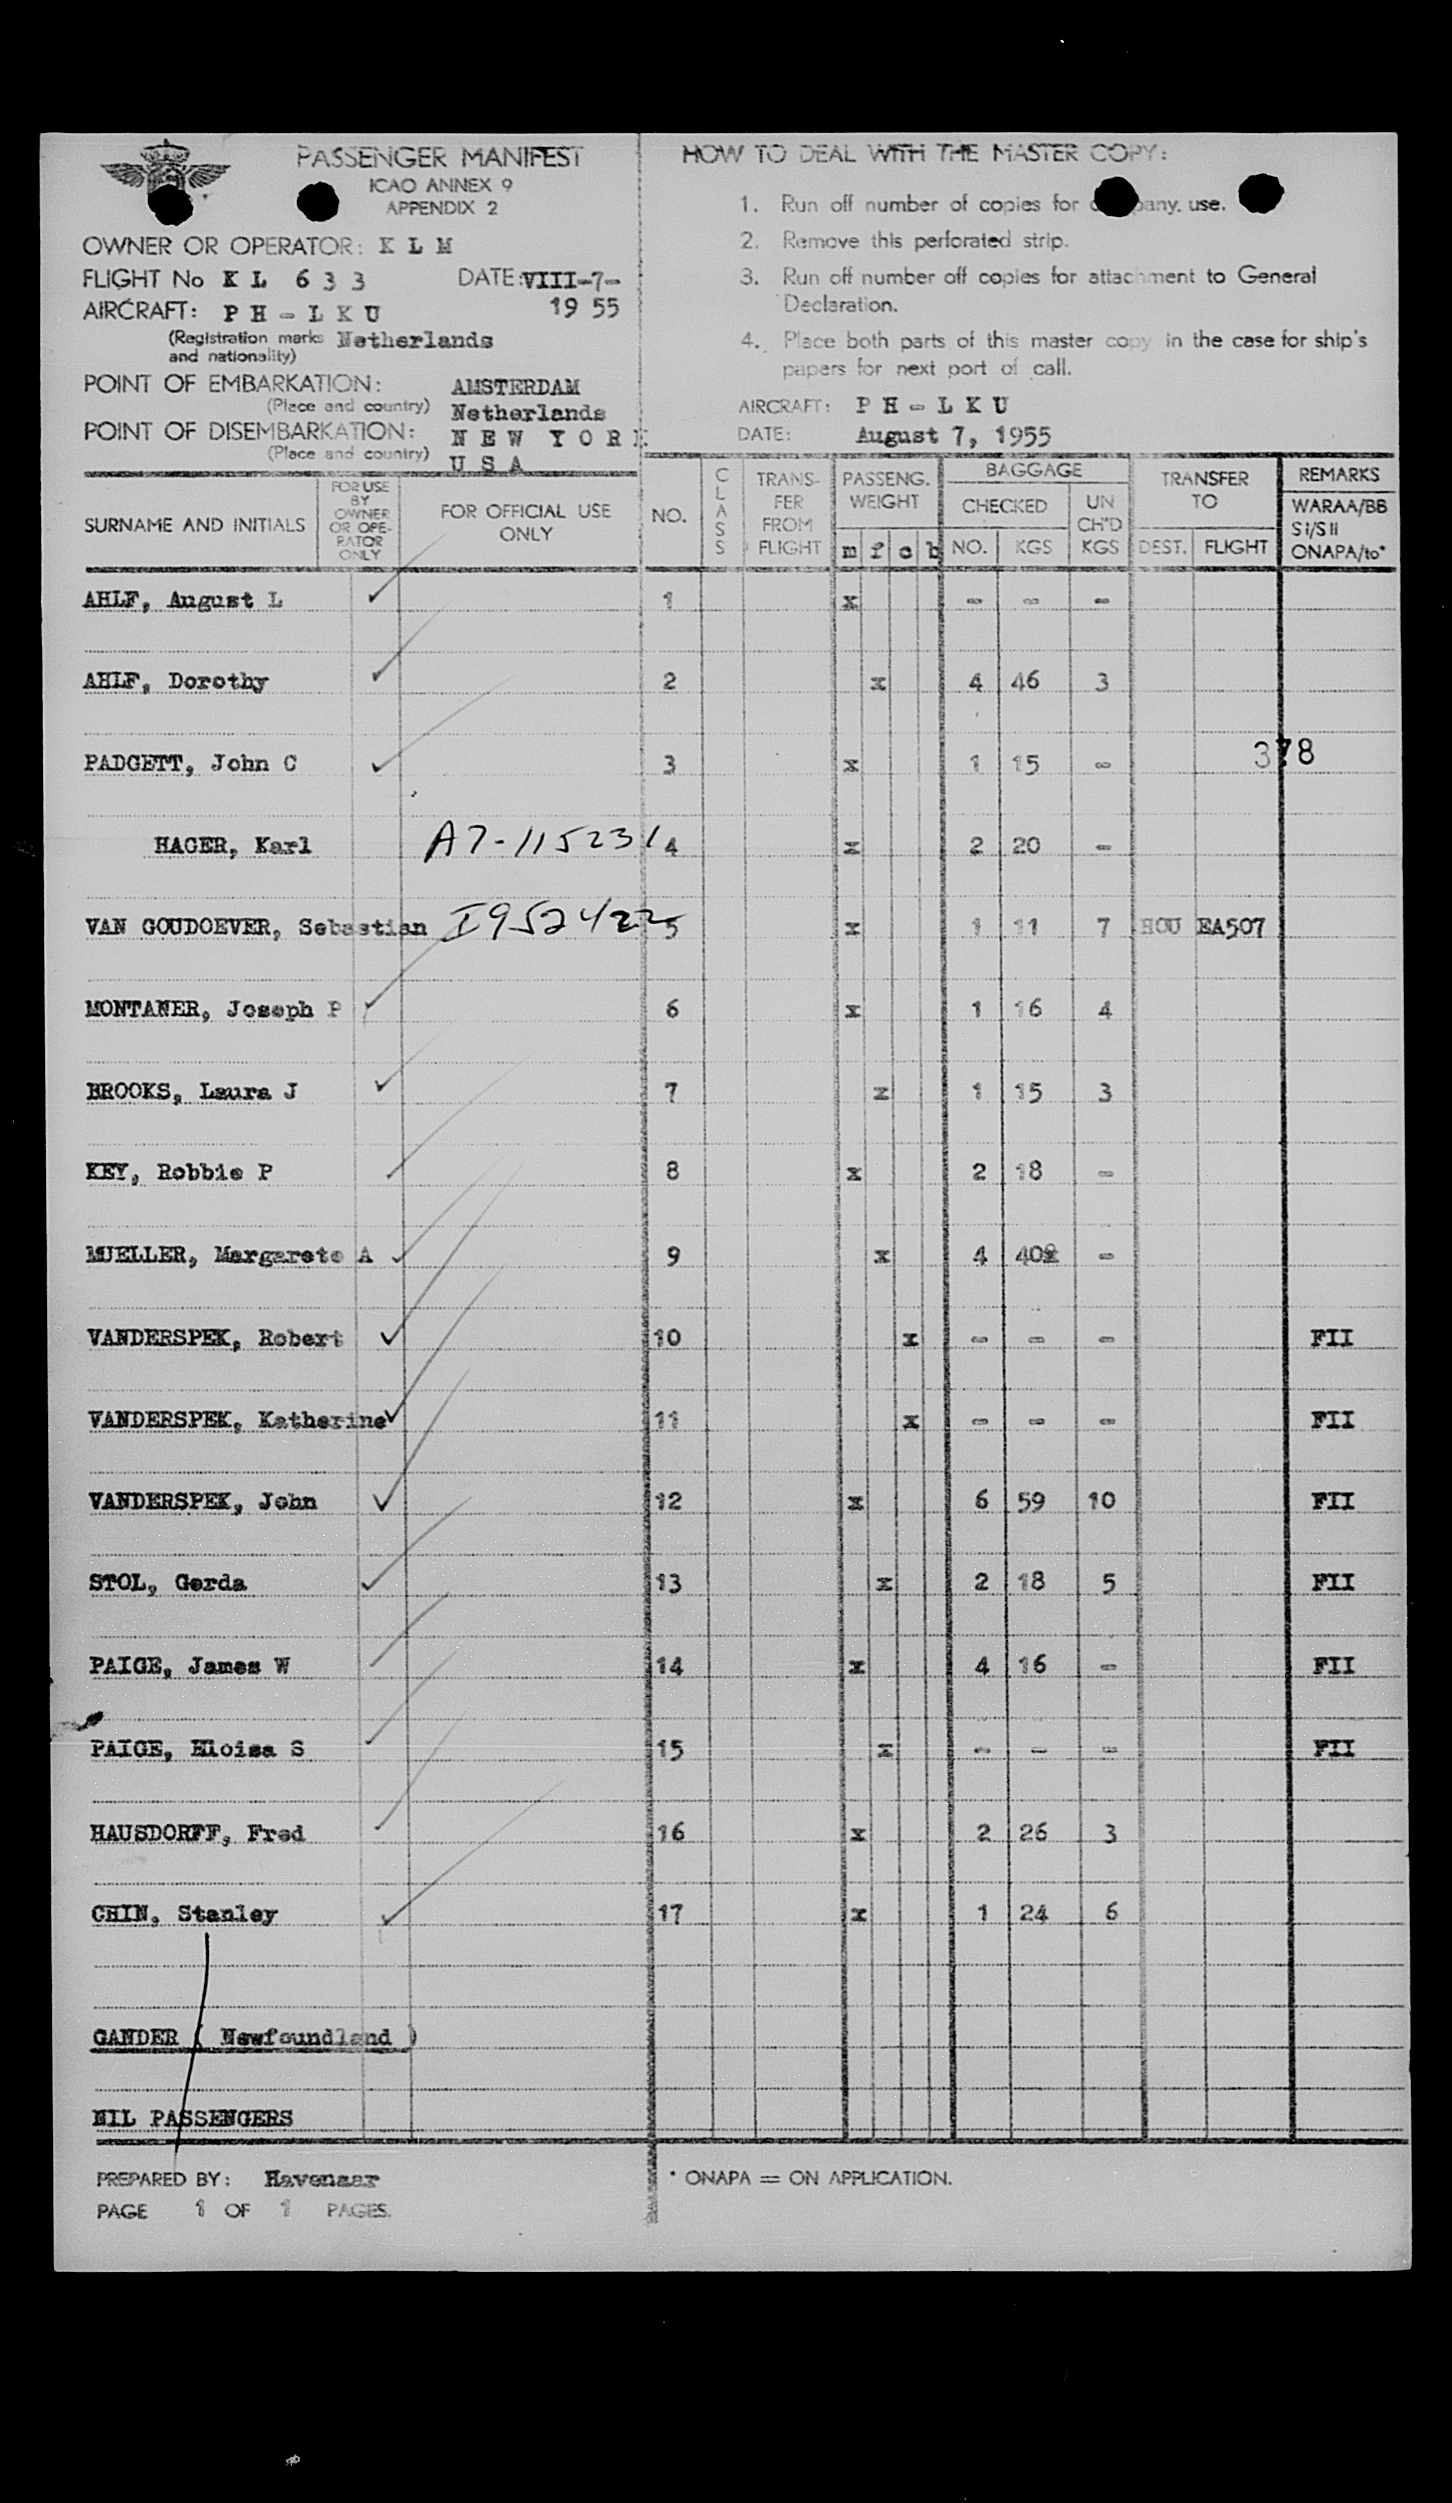 PASSENGER MANIFEST
ICAO ANNEX 9
APPENDIX 2
OWNER OR OPERATOR: K L M
FLIGHT No K L 6 3 3 DATE: VIII-7-
19 55
AIRCRAFT: P H - L K U
(Registration marks Netherlands
and nationality)
POINT OF EMBARKATION: AMSTERDAM
(Place and country) Netherlands
POINT OF DISEMBARKATION: N E W Y O R K
(Place and country) U S A
HOW TO DEAL WITH THE MASTER COPY:
1. Run off number of copies for use.
2. Remove this perforated strip.
3. Run off number off copies for attachment to General
Declaration.
4. Place both parts of this master copy in the case for ship's
papers for next port of call.
AIRCRAFT: P H - L K U
DATE: August 7, 1955
SURNAME AND INITIALS
FOR USE
BY
OWNER
OR OPE-
RATOR
ONLY
FOR OFFICIAL USE
ONLY
NO.
CLASS
TRANS-
FER
FROM
FLIGHT
PASSENG.
WEIGHT
m f c b
BAGGAGE
CHECKED
NO. KGS
UN
CH'D
KGS
TRANSFER
TO
DEST. FLIGHT
REMARKS
WARAA/BB
SI/SII
ONAPA/to*
AHLF, August L 1 x - - -
AHLF, Dorothy 2 x 4 46 3
PADGETT, John C 3 x 1 15 - 378
HAGER, Karl A7-115231 4 x 2 20 -
VAN GOUDOEVER, Sebastian I952422 5 x 1 11 7 HOU EA507
MONTANER, Joseph P 6 x 1 16 4
BROOKS, Laura J 7 x 1 15 3
KEY, Robbie P 8 x 2 18 -
MUELLER, Margarete A 9 x 4 40 -
VANDERSPEK, Robert 10 x - - - FII
VANDERSPEK, Katherine 11 x - - - FII
VANDERSPEK, John 12 x 6 59 10 FII
STOL, Gerda 13 x 2 18 5 FII
PAIGE, James W 14 x 4 16 - FII
PAIGE, Eloisa S 15 x - - - FII
HAUSDORFF, Fred 16 x 2 26 3
CHIN, Stanley 17 x 1 24 6
GANDER ( Newfoundland )
NIL PASSENGERS
PREPARED BY: Havenaar
PAGE 1 OF 1 PAGES.
* ONAPA = ON APPLICATION.